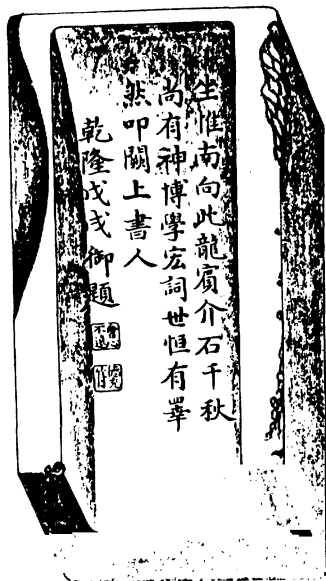 生惟南向此龍賓介石千秋
尚有神博學宏詞世恒有睪
然叩闕上書人
乾隆戊戌御題
會心不遠
德充符